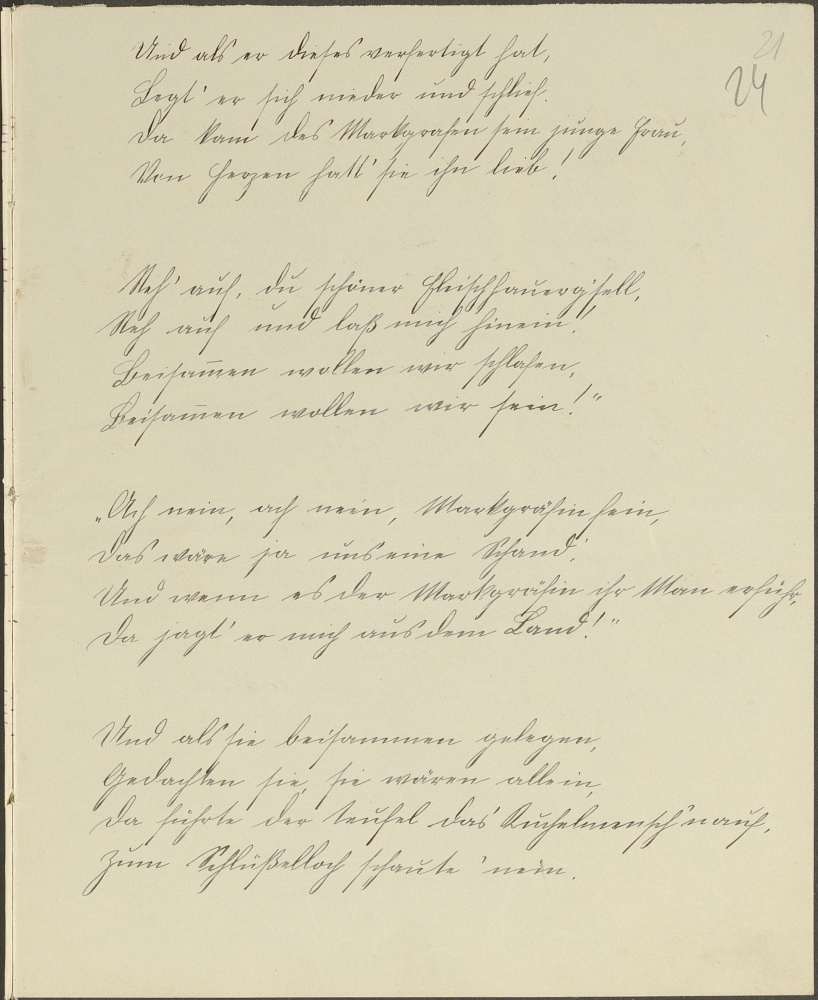 21
24
Und als er dieses verfertigt hat,
Legt' er sich nieder und schlief.
Da kam des Markgrafen sein junge Frau,
Von Herzen hatt' sie ihn lieb!
Steh' auf, du schöner Fleischhauerg'sell,
Steh auf und laß mich hinein!
Beisam̄en wollen wir schlafen,
Beisam̄en wollen wir sein!"
„Ach nein, ach nein, Markgräfin fein,
Das wäre ja uns eine Schand'.
Und wenn es der Markgräfin ihr Man erführ,
Da jagt' er mich aus dem Land!"
Und als sie beisammen gelegen,
Gedachten sie, sie wären allein,
Da führte der Teufel das Kuchelmensch 'nauf,
Zum Schlüßelloch schaute 'nein.